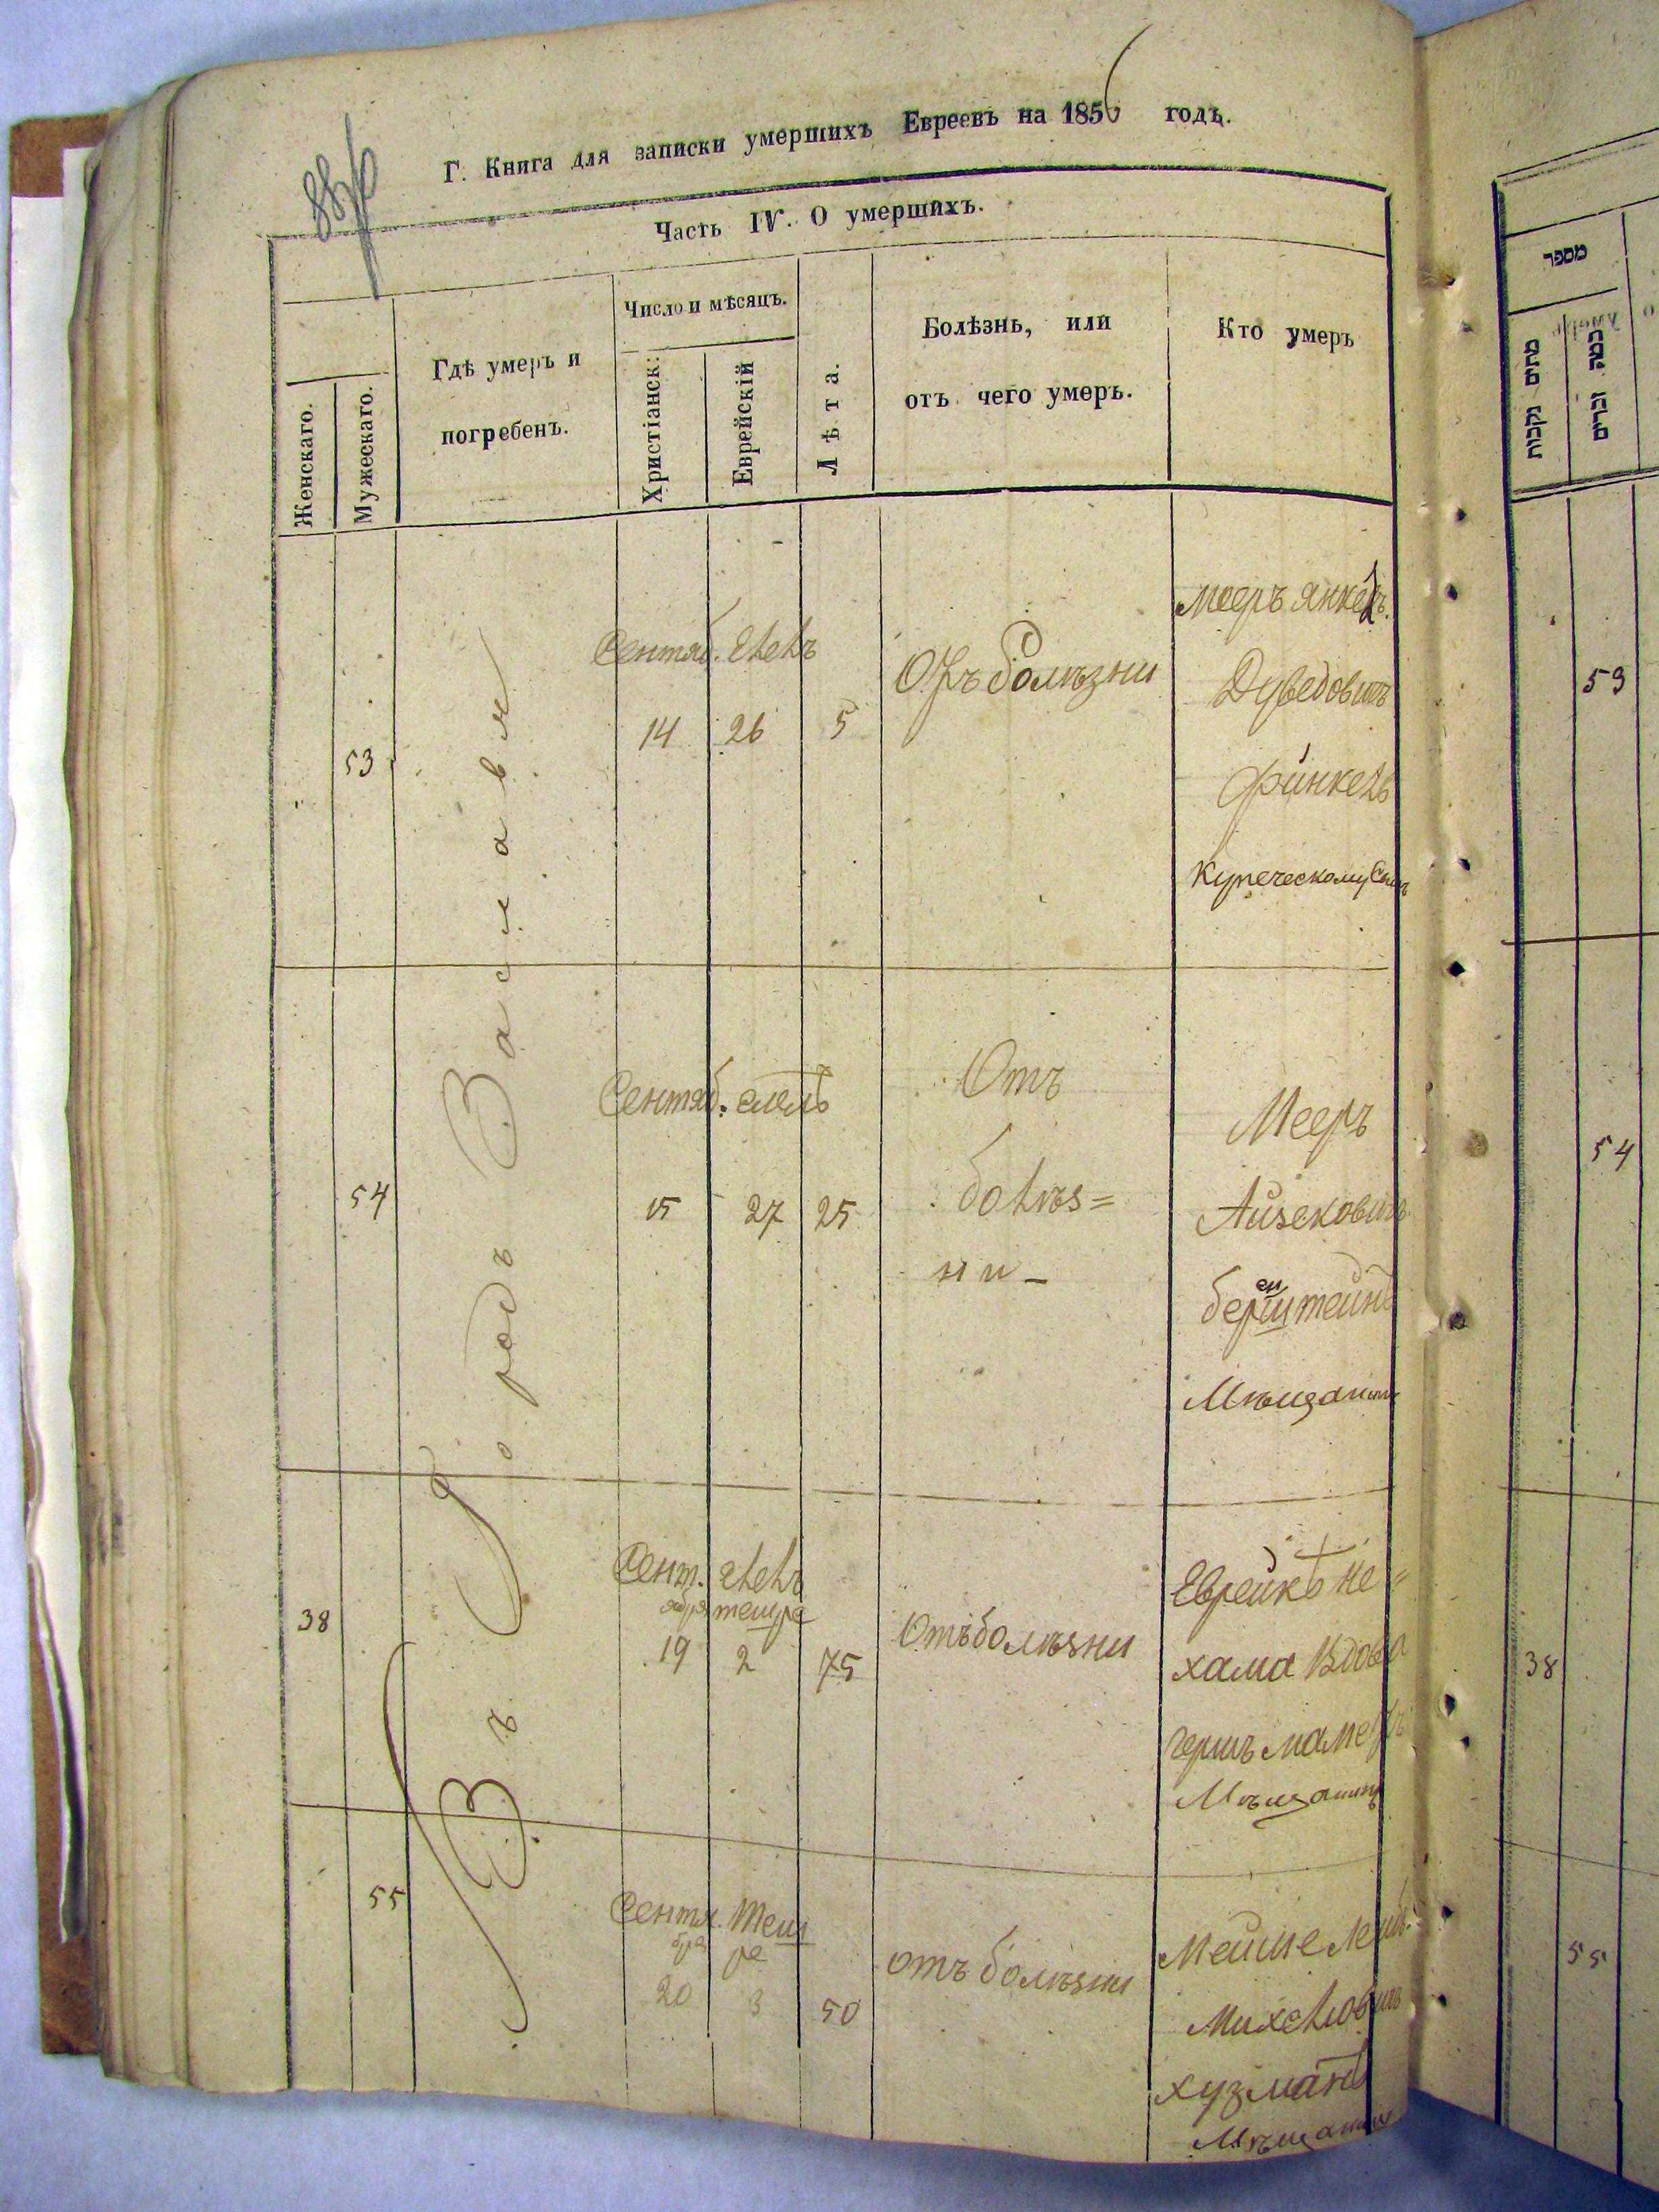 Г. Книга для записки умершихъ Евреевъ на 1856 годъ.
Часть IV. О умершихъ.
Женскаго.
Мужескаго.
Гдѣ умеръ и
погребенъ.
Число и мѣсяцъ.
Христіанск:
Еврейскій
Лѣта.
Болѣзнь, или
отъ чего умеръ.
Кто умеръ
Въ Городъ Заславля
53
Сентяб. Элелъ
14 26 5
Отъ болѣзни
Мееръ Янкель
Дуведовичъ
Финкель
Купеческому Сынъ
54
Сентяб. елелъ
15 27 25
Отъ
болѣз=
ни –
Мееръ
Айзековичъ
берештейнъ
Мѣщанинъ
38
Сент. Элелъ
ября тешре
19 2 75
Отъ болѣзни
Еврейкѣ не=
хама Вдова
гершъ
Мѣщанинъ
55
Сентя. теш
бра ре
20 3 50
отъ болѣзни
Мейше
Михелювичъ
хузманъ
Мѣщанинъ
מספר
כמה זכרים
53
54
38
55